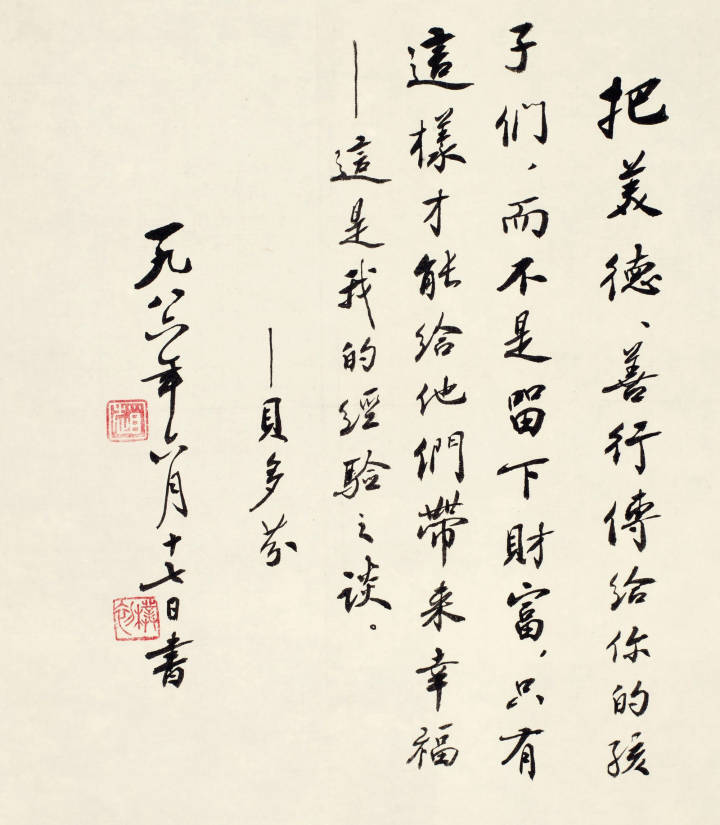 把美德、善行傳给你的孩
子們，而不是留下財富，只有
這樣才能给他們帶来幸福
—這是我的經驗之谈。
—貝多芬
一九八六年六月十七日書
趙
樸初